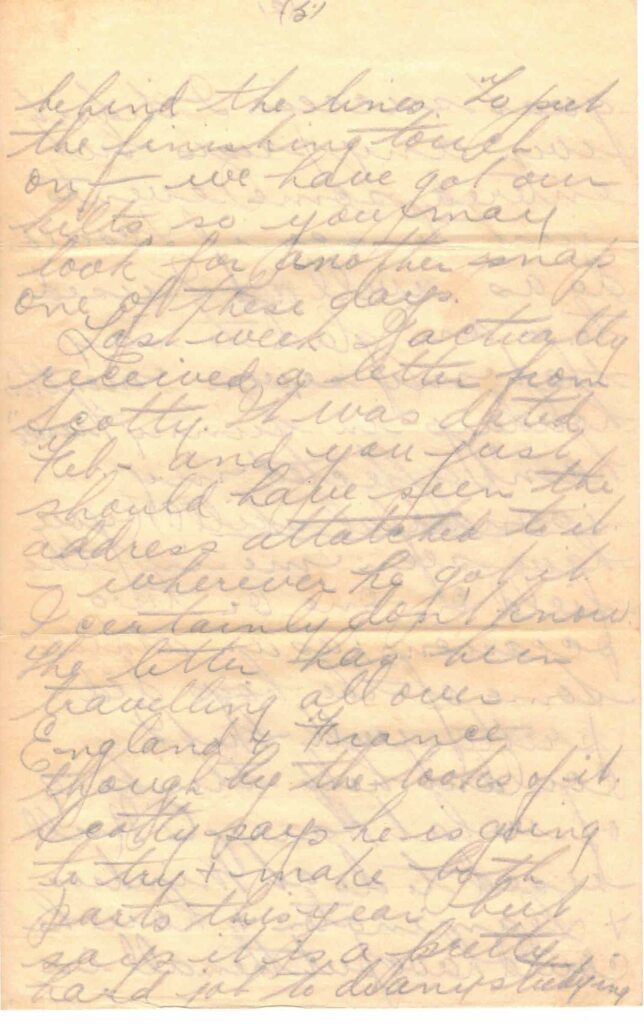 (5)
behind the lines. To put
the finishing touch
on — we have got our
kilts, so you may
look for another snap
one of these days.
Last week I actually
received a letter from
Scotty. It was dated
Feb - and you just
should have seen the
address attatched to it
- wherever he got it
I certainly don't know.
The letter had been
travelling all over
England & France
though by the looks of it.
Scotty says he is going
to try & make both
parts this year but
says it is a pretty
hard job to do any studying